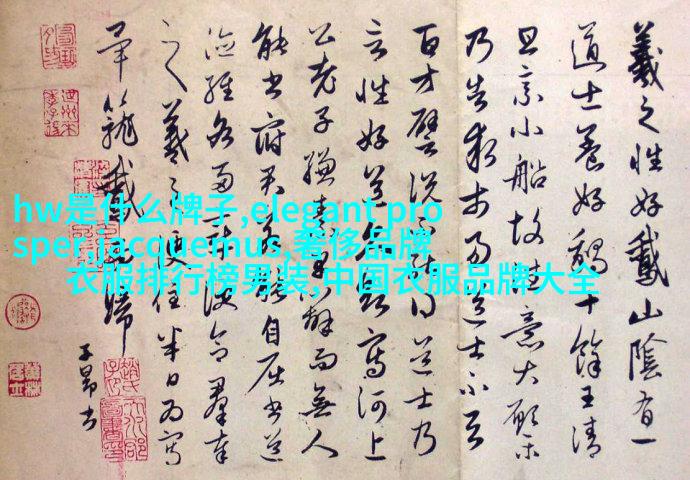 羲之性好鵞山陰有一
道士養好鵝十餘王清
旦乘小船故往意大願樂
乃告求市易道士不與
百方譬說不能得道士乃
言性好道久欲寫河上
公老子縑素早辦而無人
能書府君若能自屈書道
德經各兩章便合羣奉
之羲之便住半日為寫
畢籠鵞而歸
子昂書
hw是什么牌子,elegant pro
sper,jacquemus,奢侈品牌
衣服排行榜男装,中国衣服品牌大全